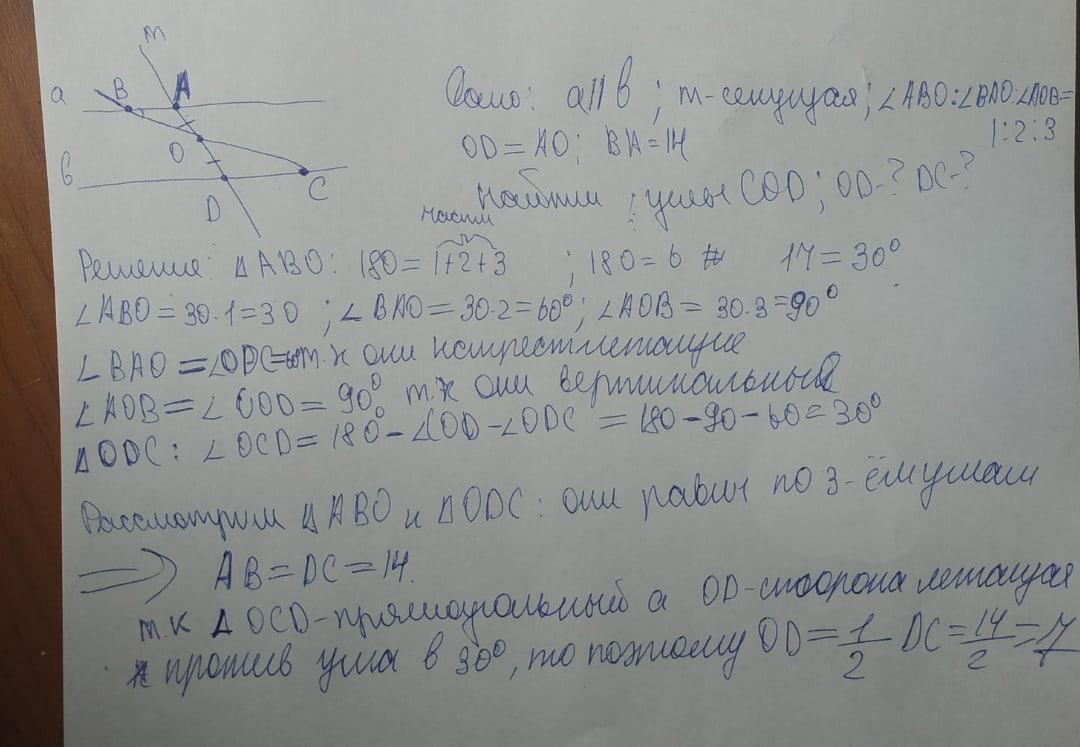 m
a
B
A
O
b
D
C
Дано: a || b ; m-секущая; ∠ABO:∠BAO:∠AOB=
1:2:3
OD=AO; BA=14
Найти : углы COD; OD-? DC-?
части
Решение: △ABO: 180=1+2+3 ; 180=6 14=30°
∠ABO=30·1=30 ; ∠BAO=30·2=60°; ∠AOB=30·3=90°
∠BAO=∠ODC=60 т.к они накрестлежащие
∠AOB=∠COD=90° т.к они вертикальный
△ODC: ∠OCD=180°-∠COD-∠ODC=180-90-60=30°
Рассмотрим △ABO и △ODC: они равны по 3-ём углам
⟹ AB=DC=14.
т.к △OCD-прямоугольный а OD-сторона лежащая
против угла в 30°, то поэтому OD=1/2 DC=14/2=7